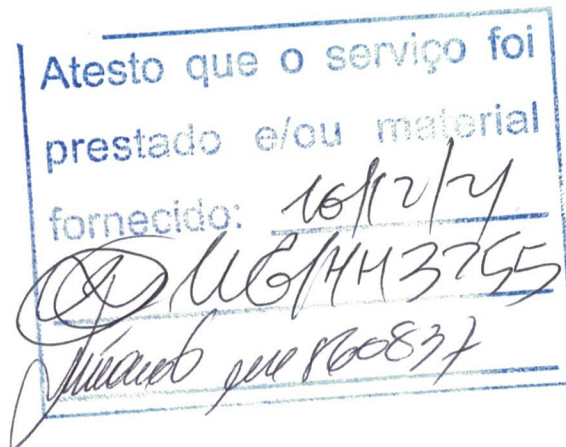 Atesto que o serviço foi
prestado e/ou material
fornecido: 16/12/21
3255
860837